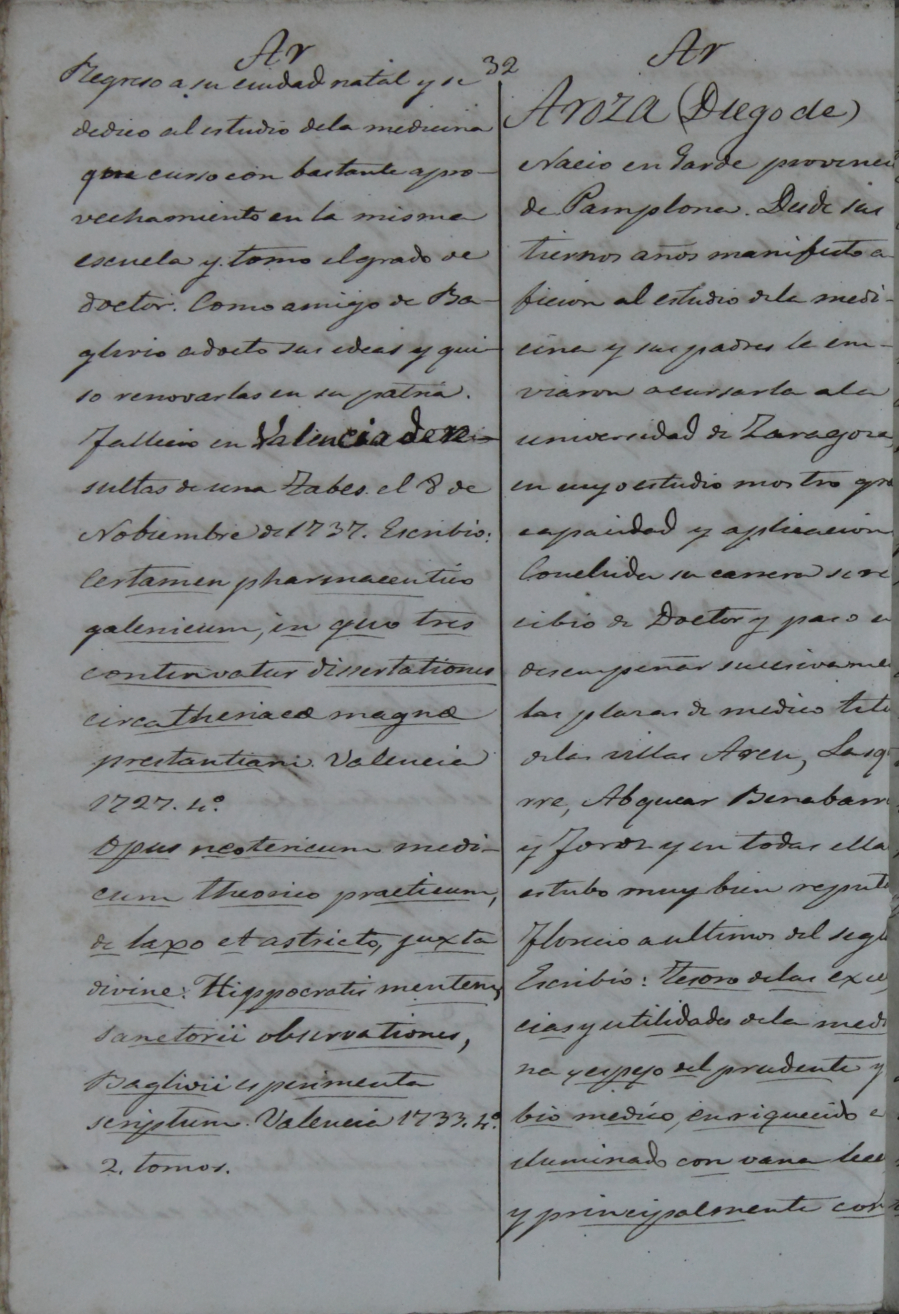 Ar
32
Regreso a su ciudad natal y se
dedico al estudio dela medicina
que curso con bastante apro-
vechamiento en la misma
escuela y tomo el grado de
doctor. Como amigo de Ba-
glivio adocto sus ideas y qui-
so renovarlas en su patria.
Fallecio en Valencia de re-
sultas de una Tabes el 8 de
Nobiembre de 1737. Escribio:
Certamen pharmaceutico
galenicum, in quo tres
continvatur dissertationes
circa theriacæ magnæ
prestantiam. Valencia
1727. 4º
Opus neotericum medi-
cum theorico practicum,
de laxo et astricto, juxta
divine: Hippocratis mentem,
Sanctorii observationes,
Baglivii esperimenta
scriptum. Valencia 1733. 4º.
2. tomos.
Ar
AROZA (Diego de)
Nacio en Garde provinci
de Pamplona. Desde sus
tiernos años manifesto a
ficion al estudio dela medi-
cina y sus padres le en-
viaron a cursarla ala
universidad de Zaragoza,
en cuyo estudio mostro gra
capacidad y aplicacion
Concluida su carrera se re
cibio de Doctor y paso a
desempeñar sucesivame
las plazas de medico titu
delas villas Aren, Lasq
rre, Alquezar Benabarr
y Foroz y en todas ella
estubo muy bien reput
Florecio a ultimos del sigl
Escribio: Tesoro delas exce
cias y utilidades dela medi
na y espejo del prudente y
bio medico, enriquecido e
iluminado con varia lec
y principalmente con